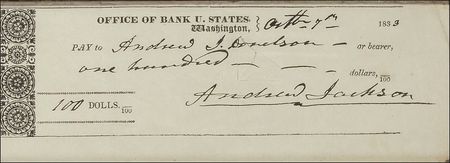 OFFICE OF BANK U. STATES,
Washington, Octbr 7th 1833
PAY to Andrew J. Donelson — or bearer,
one hundred — — — dollars, /100
100 DOLLS. /100
Andrew Jackson